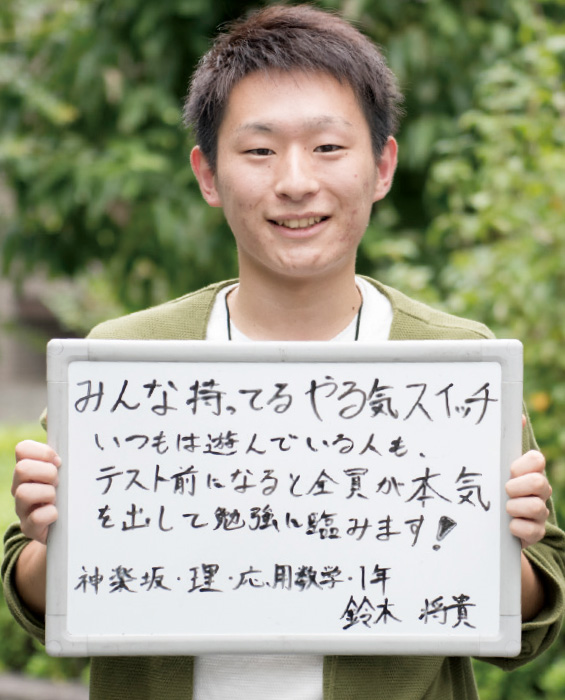 みんな持ってるやる気スイッチ
いつもは遊んでいる人も、
テスト前になると全員が本気
を出して勉強に臨みます!
神楽坂・理・応用数学・1年
鈴木 将貴